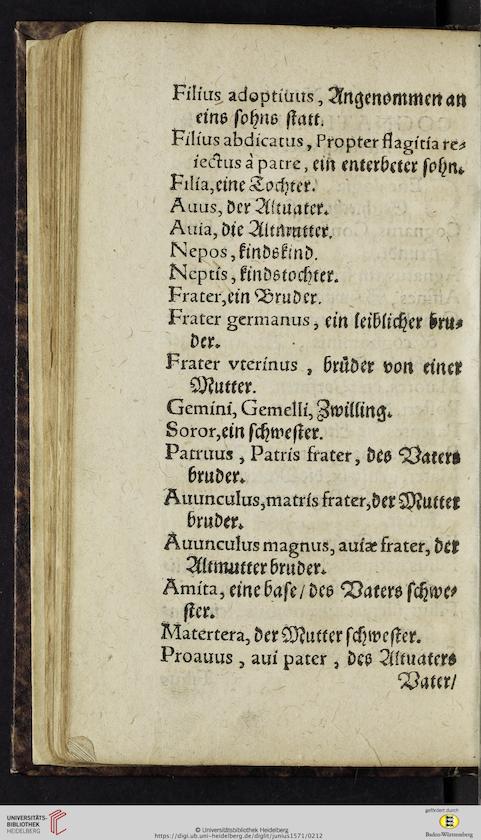 Filius adoptiuus, Angenommen an
eins sohns statt.
Filius abdicatus, Propter flagitia re⸗
iectus à patre, ein enterbeter sohn.
Filia, eine Tochter.
Auus, der Altuater.
Auia, die Altmutter.
Nepos, kindskind.
Neptis, kindstochter.
Frater, ein Bruder.
Frater germanus, ein leiblicher bru⸗
der.
Frater vterinus, brüder von einer
Mutter.
Gemini, Gemelli, Zwilling.
Soror, ein schwester.
Patruus, Patris frater, des Vaters
bruder.
Auunculus, matris frater, der Mutter
bruder.
Auunculus magnus, auiæ frater, der
Altmutter bruder.
Amita, eine base / des Vaters schwe⸗
ster.
Matertera, der Mutter schwester.
Proauus, aui pater, des Altuaters
Vater/
UNIVERSITÄTS-
BIBLIOTHEK
HEIDELBERG
© Universitätsbibliothek Heidelberg
https://digi.ub.uni-heidelberg.de/diglit/junius1571/0212
gefördert durch
Baden-Württemberg